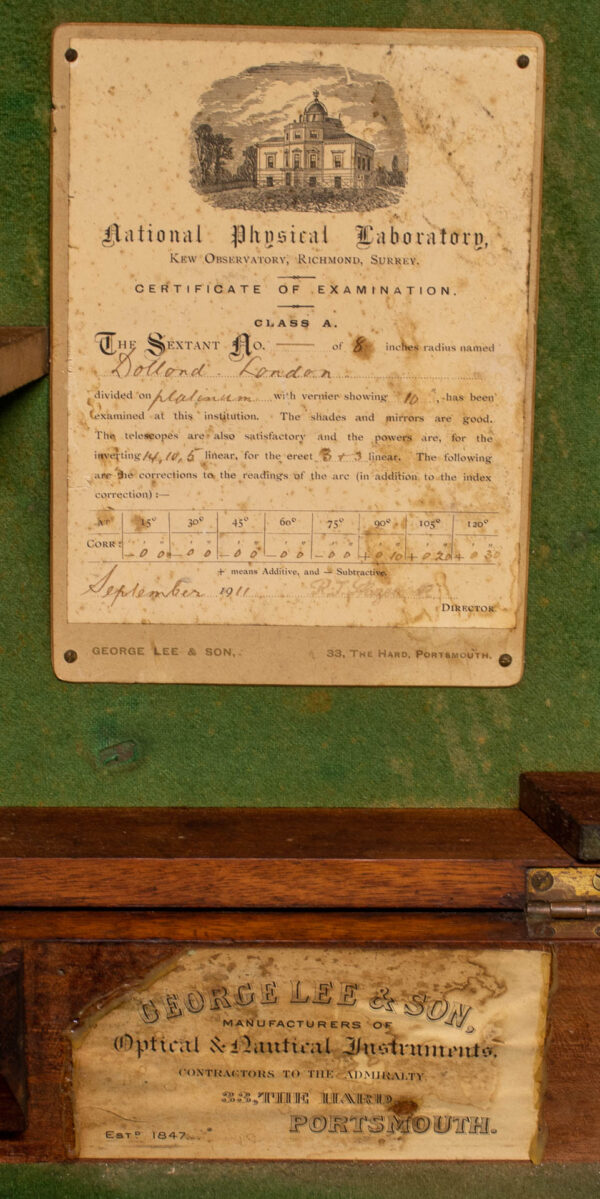 National Physical Laboratory,
KEW OBSERVATORY, RICHMOND, SURREY.
CERTIFICATE OF EXAMINATION.
CLASS A.
THE SEXTANT NO. — of 8 inches radius named
Dollond London
divided on platinum with vernier showing 10 ", has been
examined at this institution. The shades and mirrors are good.
The telescopes are also satisfactory and the powers are, for the
inverting 14, 10, 5 linear, for the erect 3 + 3 linear. The following
are the corrections to the readings of the arc (in addition to the index
correction) :—
15° 30° 45° 60° 75° 90° 105° 120°
CORR : ' " ' " ' " ' " ' " ' " ' " ' "
– 0 0 – 0 0 – 0 0 – 0 0 – 0 0 + 0 10 + 0 20 + 0 30
+ means Additive, and — Subtractive.
September 1911
DIRECTOR
GEORGE LEE & SON, 33, THE HARD, PORTSMOUTH.
GEORGE LEE & SON,
MANUFACTURERS OF
Optical & Nautical Instruments.
CONTRACTORS TO THE ADMIRALTY
33, THE HARD
PORTSMOUTH.
ESTD 1847.